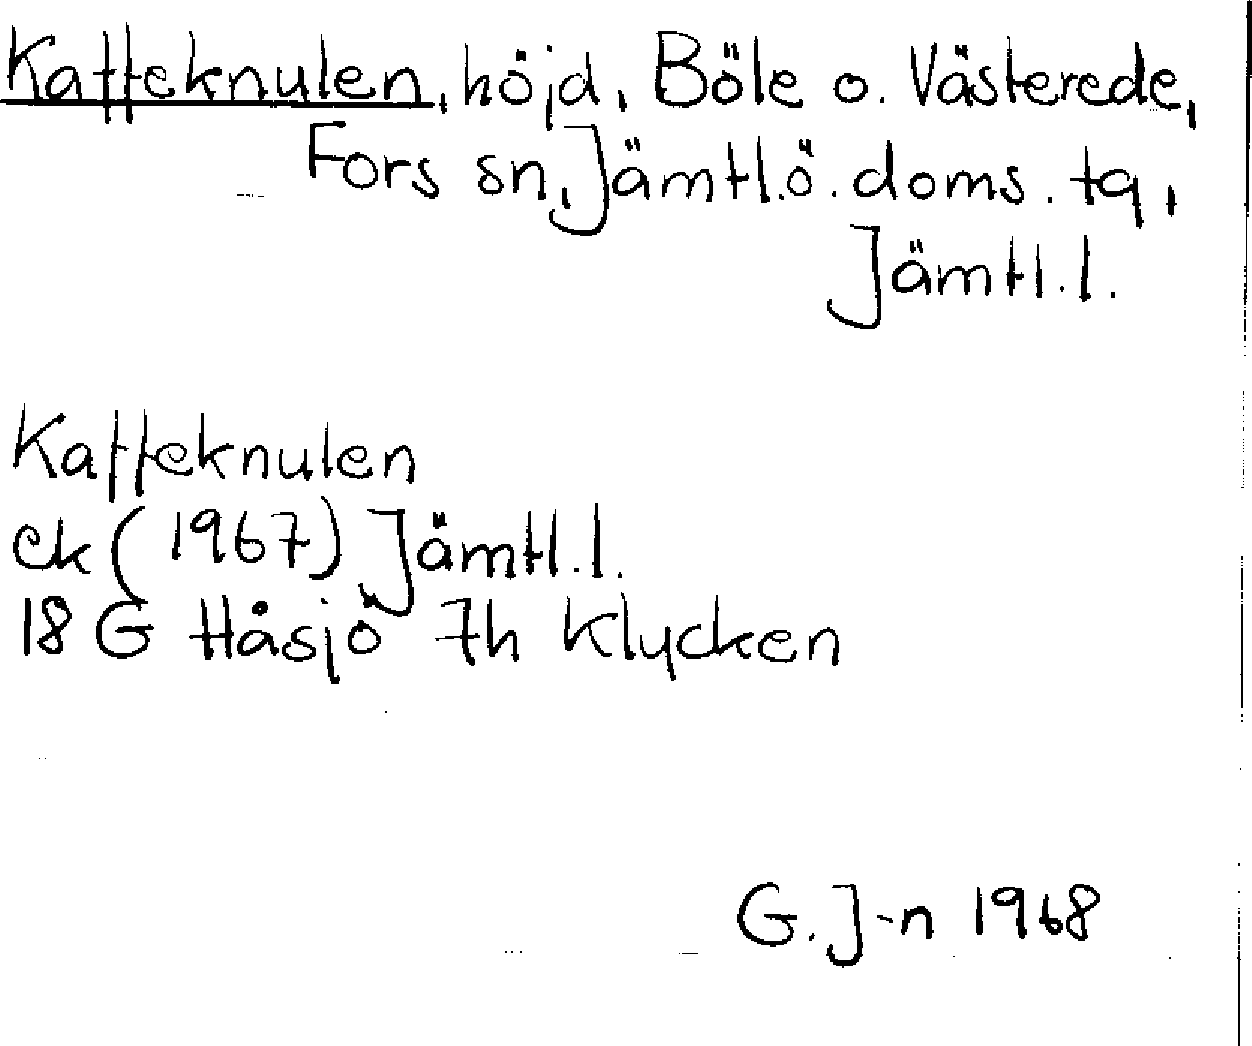 Kaffeknulen, höjd, Böle o. Västerede,
Fors sn, Jämtl.ö. doms. tg,
Jämtl.l.
Kaffeknulen
ek (1967) Jämtl.l.
18 G Håsjö 7h Klycken
G. J-n 1968